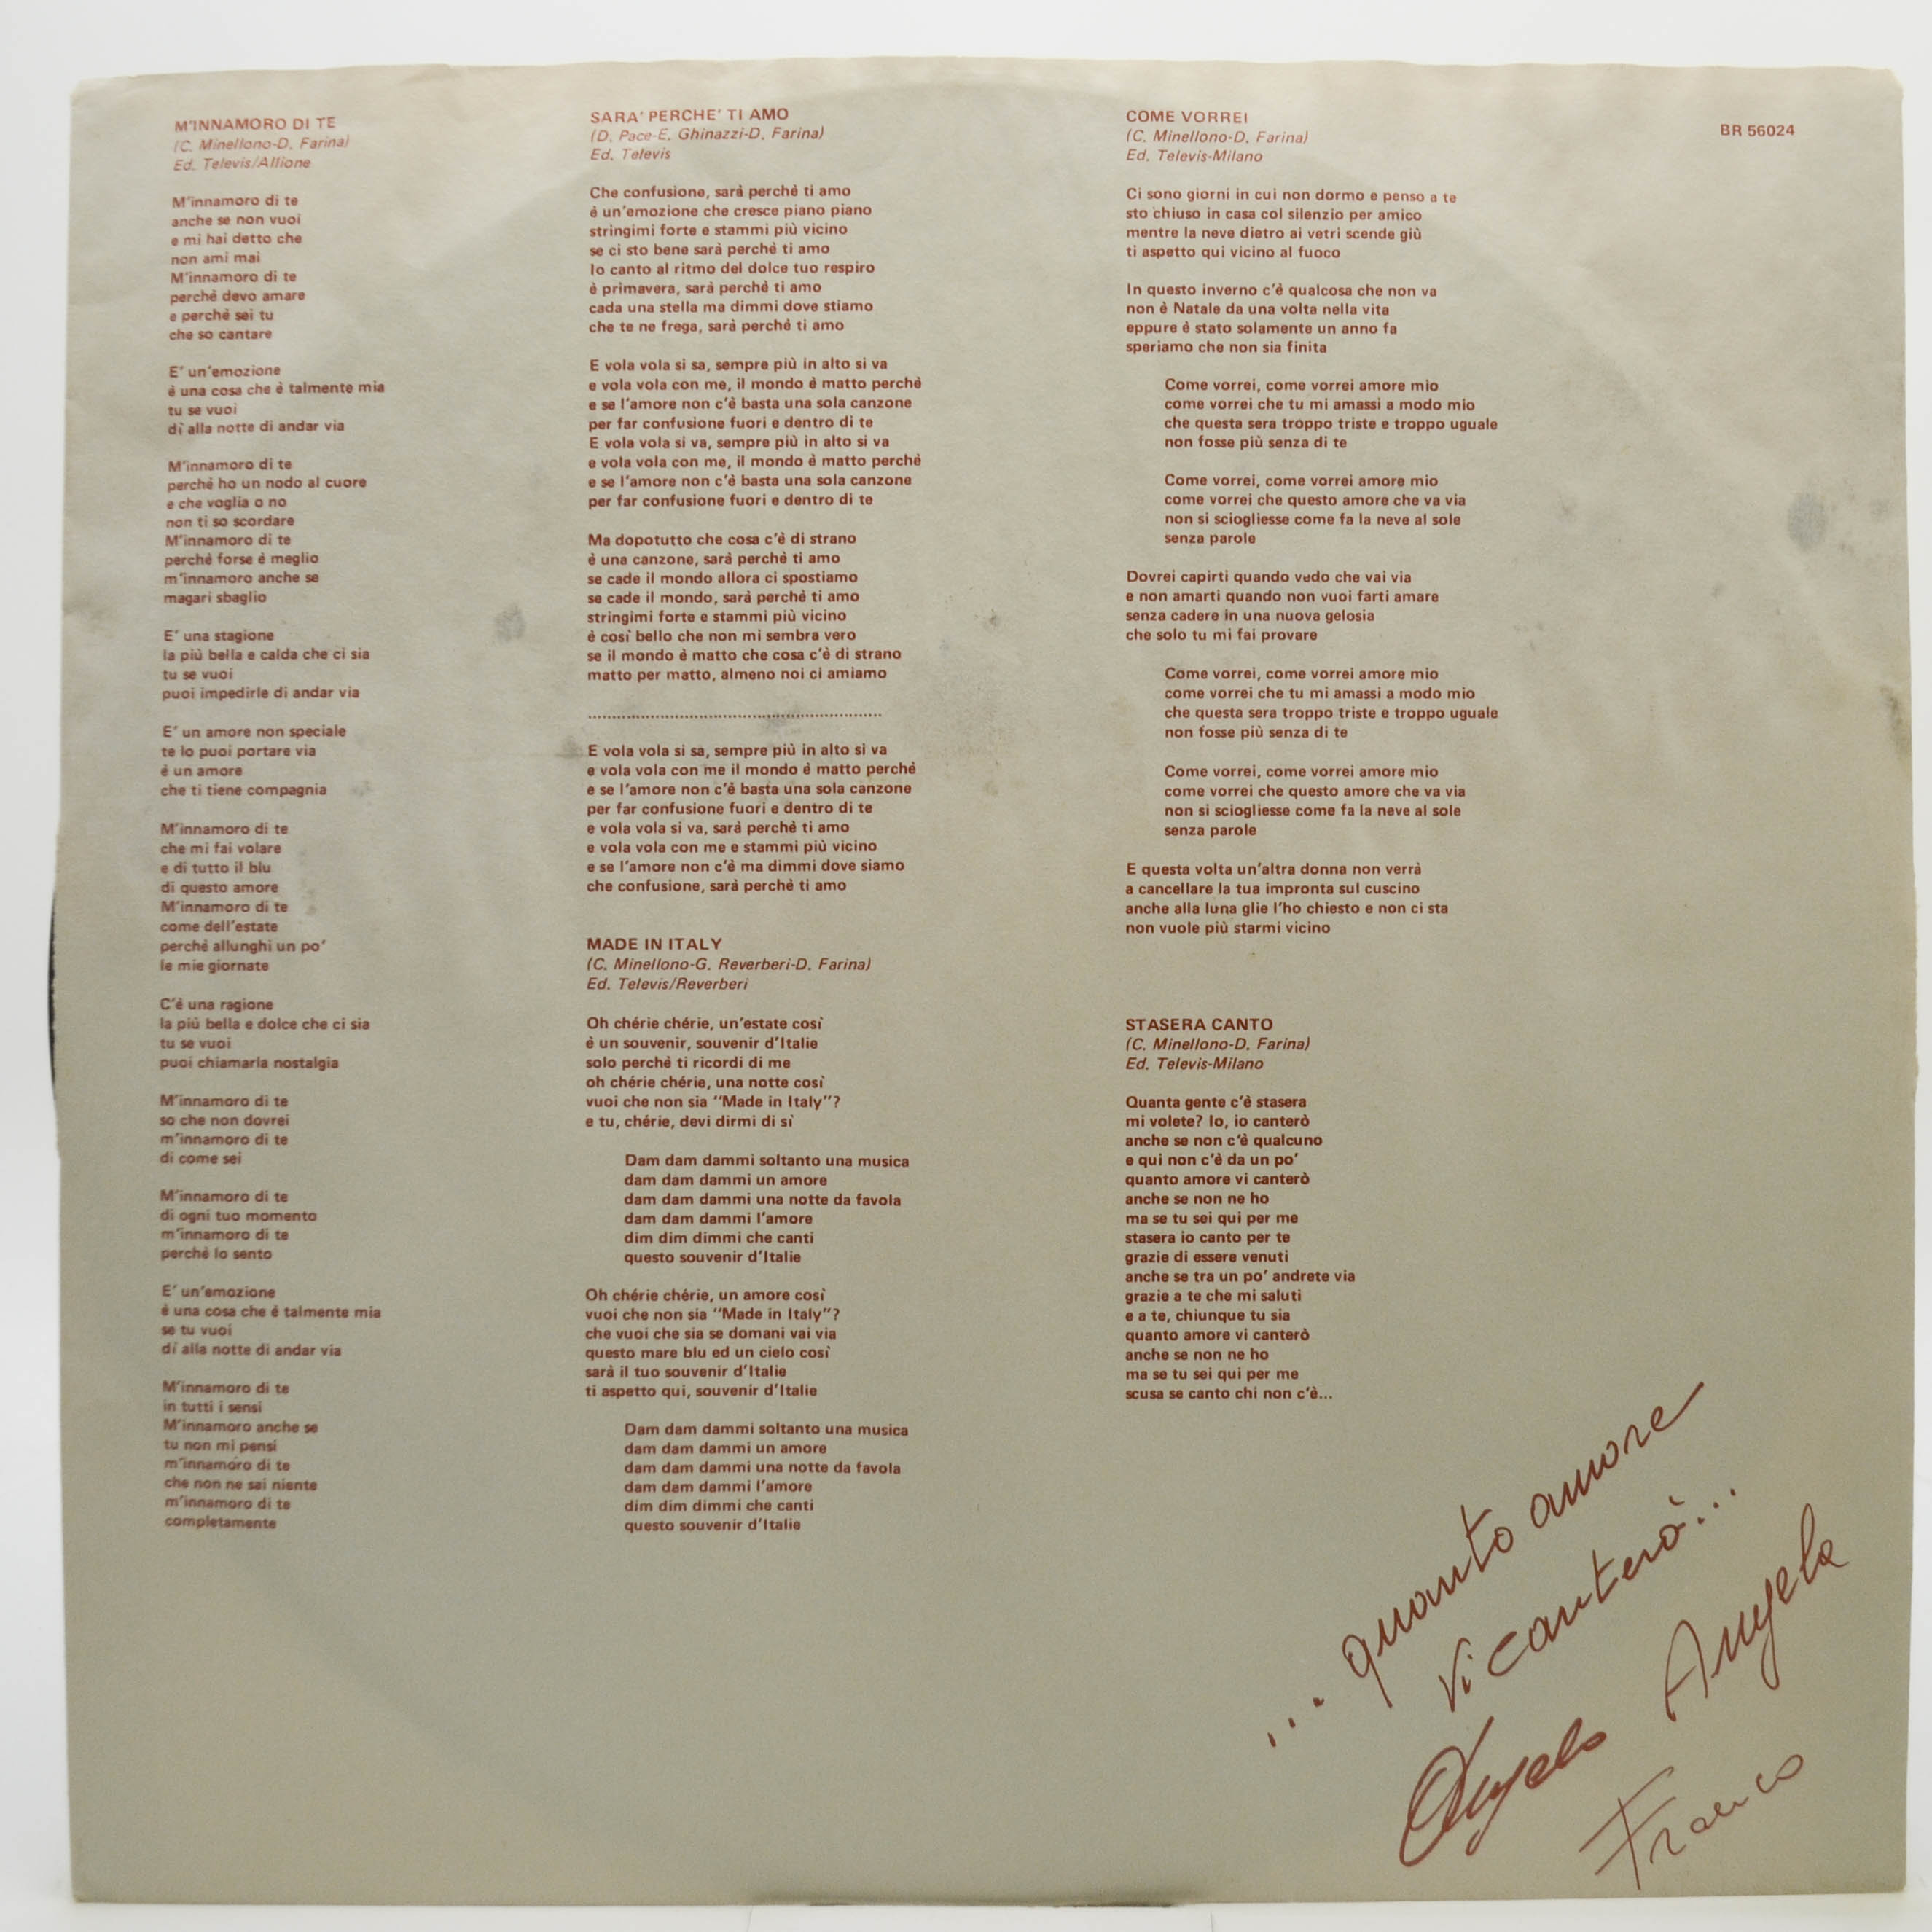 M'INNAMORO DI TE
(C. Minellono-D. Farina)
Ed. Televis/Allione
M'innamoro di te
anche se non vuoi
e mi hai detto che
non ami mai
M'innamoro di te
perchè devo amare
e perchè sei tu
che so cantare
E' un'emozione
è una cosa che è talmente mia
tu se vuoi
dì alla notte di andar via
M'innamoro di te
perchè ho un nodo al cuore
e che voglia o no
non ti so scordare
M'innamoro di te
perchè forse è meglio
m'innamoro anche se
magari sbaglio
E' una stagione
la più bella e calda che ci sia
tu se vuoi
puoi impedirle di andar via
E' un amore non speciale
te lo puoi portare via
è un amore
che ti tiene compagnia
M'innamoro di te
che mi fai volare
e di tutto il blu
di questo amore
M'innamoro di te
come dell'estate
perchè allunghi un po'
le mie giornate
C'è una ragione
la più bella e dolce che ci sia
tu se vuoi
puoi chiamarla nostalgia
M'innamoro di te
so che non dovrei
m'innamoro di te
di come sei
M'innamoro di te
di ogni tuo momento
m'innamoro di te
perchè lo sento
E' un'emozione
è una cosa che è talmente mia
se tu vuoi
dì alla notte di andar via
M'innamoro di te
in tutti i sensi
M'innamoro anche se
tu non mi pensi
m'innamoro di te
che non ne sai niente
m'innamoro di te
completamente
SARA' PERCHE' TI AMO
(D. Pace-E. Ghinazzi-D. Farina)
Ed. Televis
Che confusione, sarà perchè ti amo
è un'emozione che cresce piano piano
stringimi forte e stammi più vicino
se ci sto bene sarà perchè ti amo
Io canto al ritmo del dolce tuo respiro
è primavera, sarà perchè ti amo
cada una stella ma dimmi dove stiamo
che te ne frega, sarà perchè ti amo
E vola vola si sa, sempre più in alto si va
e vola vola con me, il mondo è matto perchè
e se l'amore non c'è basta una sola canzone
per far confusione fuori e dentro di te
E vola vola si va, sempre più in alto si va
e vola vola con me, il mondo è matto perchè
e se l'amore non c'è basta una sola canzone
per far confusione fuori e dentro di te
Ma dopotutto che cosa c'è di strano
è una canzone, sarà perchè ti amo
se cade il mondo allora ci spostiamo
se cade il mondo, sarà perchè ti amo
stringimi forte e stammi più vicino
è così bello che non mi sembra vero
se il mondo è matto che cosa c'è di strano
matto per matto, almeno noi ci amiamo
............................................................
E vola vola si sa, sempre più in alto si va
e vola vola con me il mondo è matto perchè
e se l'amore non c'è basta una sola canzone
per far confusione fuori e dentro di te
e vola vola si va, sarà perchè ti amo
e vola vola con me e stammi più vicino
e se l'amore non c'è ma dimmi dove siamo
che confusione, sarà perchè ti amo
MADE IN ITALY
(C. Minellono-G. Reverberi-D. Farina)
Ed. Televis/Reverberi
Oh chérie chérie, un'estate così
è un souvenir, souvenir d'Italie
solo perchè ti ricordi di me
oh chérie chérie, una notte così
vuoi che non sia "Made in Italy"?
e tu, chérie, devi dirmi di sì
Dam dam dammi soltanto una musica
dam dam dammi un amore
dam dam dammi una notte da favola
dam dam dammi l'amore
dim dim dimmi che canti
questo souvenir d'Italie
Oh chérie chérie, un amore così
vuoi che non sia "Made in Italy"?
che vuoi che sia se domani vai via
questo mare blu ed un cielo così
sarà il tuo souvenir d'Italie
ti aspetto qui, souvenir d'Italie
Dam dam dammi soltanto una musica
dam dam dammi un amore
dam dam dammi una notte da favola
dam dam dammi l'amore
dim dim dimmi che canti
questo souvenir d'Italie
COME VORREI
(C. Minellono-D. Farina)
Ed. Televis-Milano
Ci sono giorni in cui non dormo e penso a te
sto chiuso in casa col silenzio per amico
mentre la neve dietro ai vetri scende giù
ti aspetto qui vicino al fuoco
In questo inverno c'è qualcosa che non va
non è Natale da una volta nella vita
eppure è stato solamente un anno fa
speriamo che non sia finita
Come vorrei, come vorrei amore mio
come vorrei che tu mi amassi a modo mio
che questa sera troppo triste e troppo uguale
non fosse più senza di te
Come vorrei, come vorrei amore mio
come vorrei che questo amore che va via
non si sciogliesse come fa la neve al sole
senza parole
Dovrei capirti quando vedo che vai via
e non amarti quando non vuoi farti amare
senza cadere in una nuova gelosia
che solo tu mi fai provare
Come vorrei, come vorrei amore mio
come vorrei che tu mi amassi a modo mio
che questa sera troppo triste e troppo uguale
non fosse più senza di te
Come vorrei, come vorrei amore mio
come vorrei che questo amore che va via
non si sciogliesse come fa la neve al sole
senza parole
E questa volta un'altra donna non verrà
a cancellare la tua impronta sul cuscino
anche alla luna glie l'ho chiesto e non ci sta
non vuole più starmi vicino
STASERA CANTO
(C. Minellono-D. Farina)
Ed. Televis-Milano
Quanta gente c'è stasera
mi volete? Io, io canterò
anche se non c'è qualcuno
e qui non c'è da un po'
quanto amore vi canterò
anche se non ne ho
ma se tu sei qui per me
stasera io canto per te
grazie di essere venuti
anche se tra un po' andrete via
grazie a te che mi saluti
e a te, chiunque tu sia
quanto amore vi canterò
anche se non ne ho
ma se tu sei qui per me
scusa se canto chi non c'è...
BR 56024
... quanto amore
vi canterò...
Angelo Angela
Franco